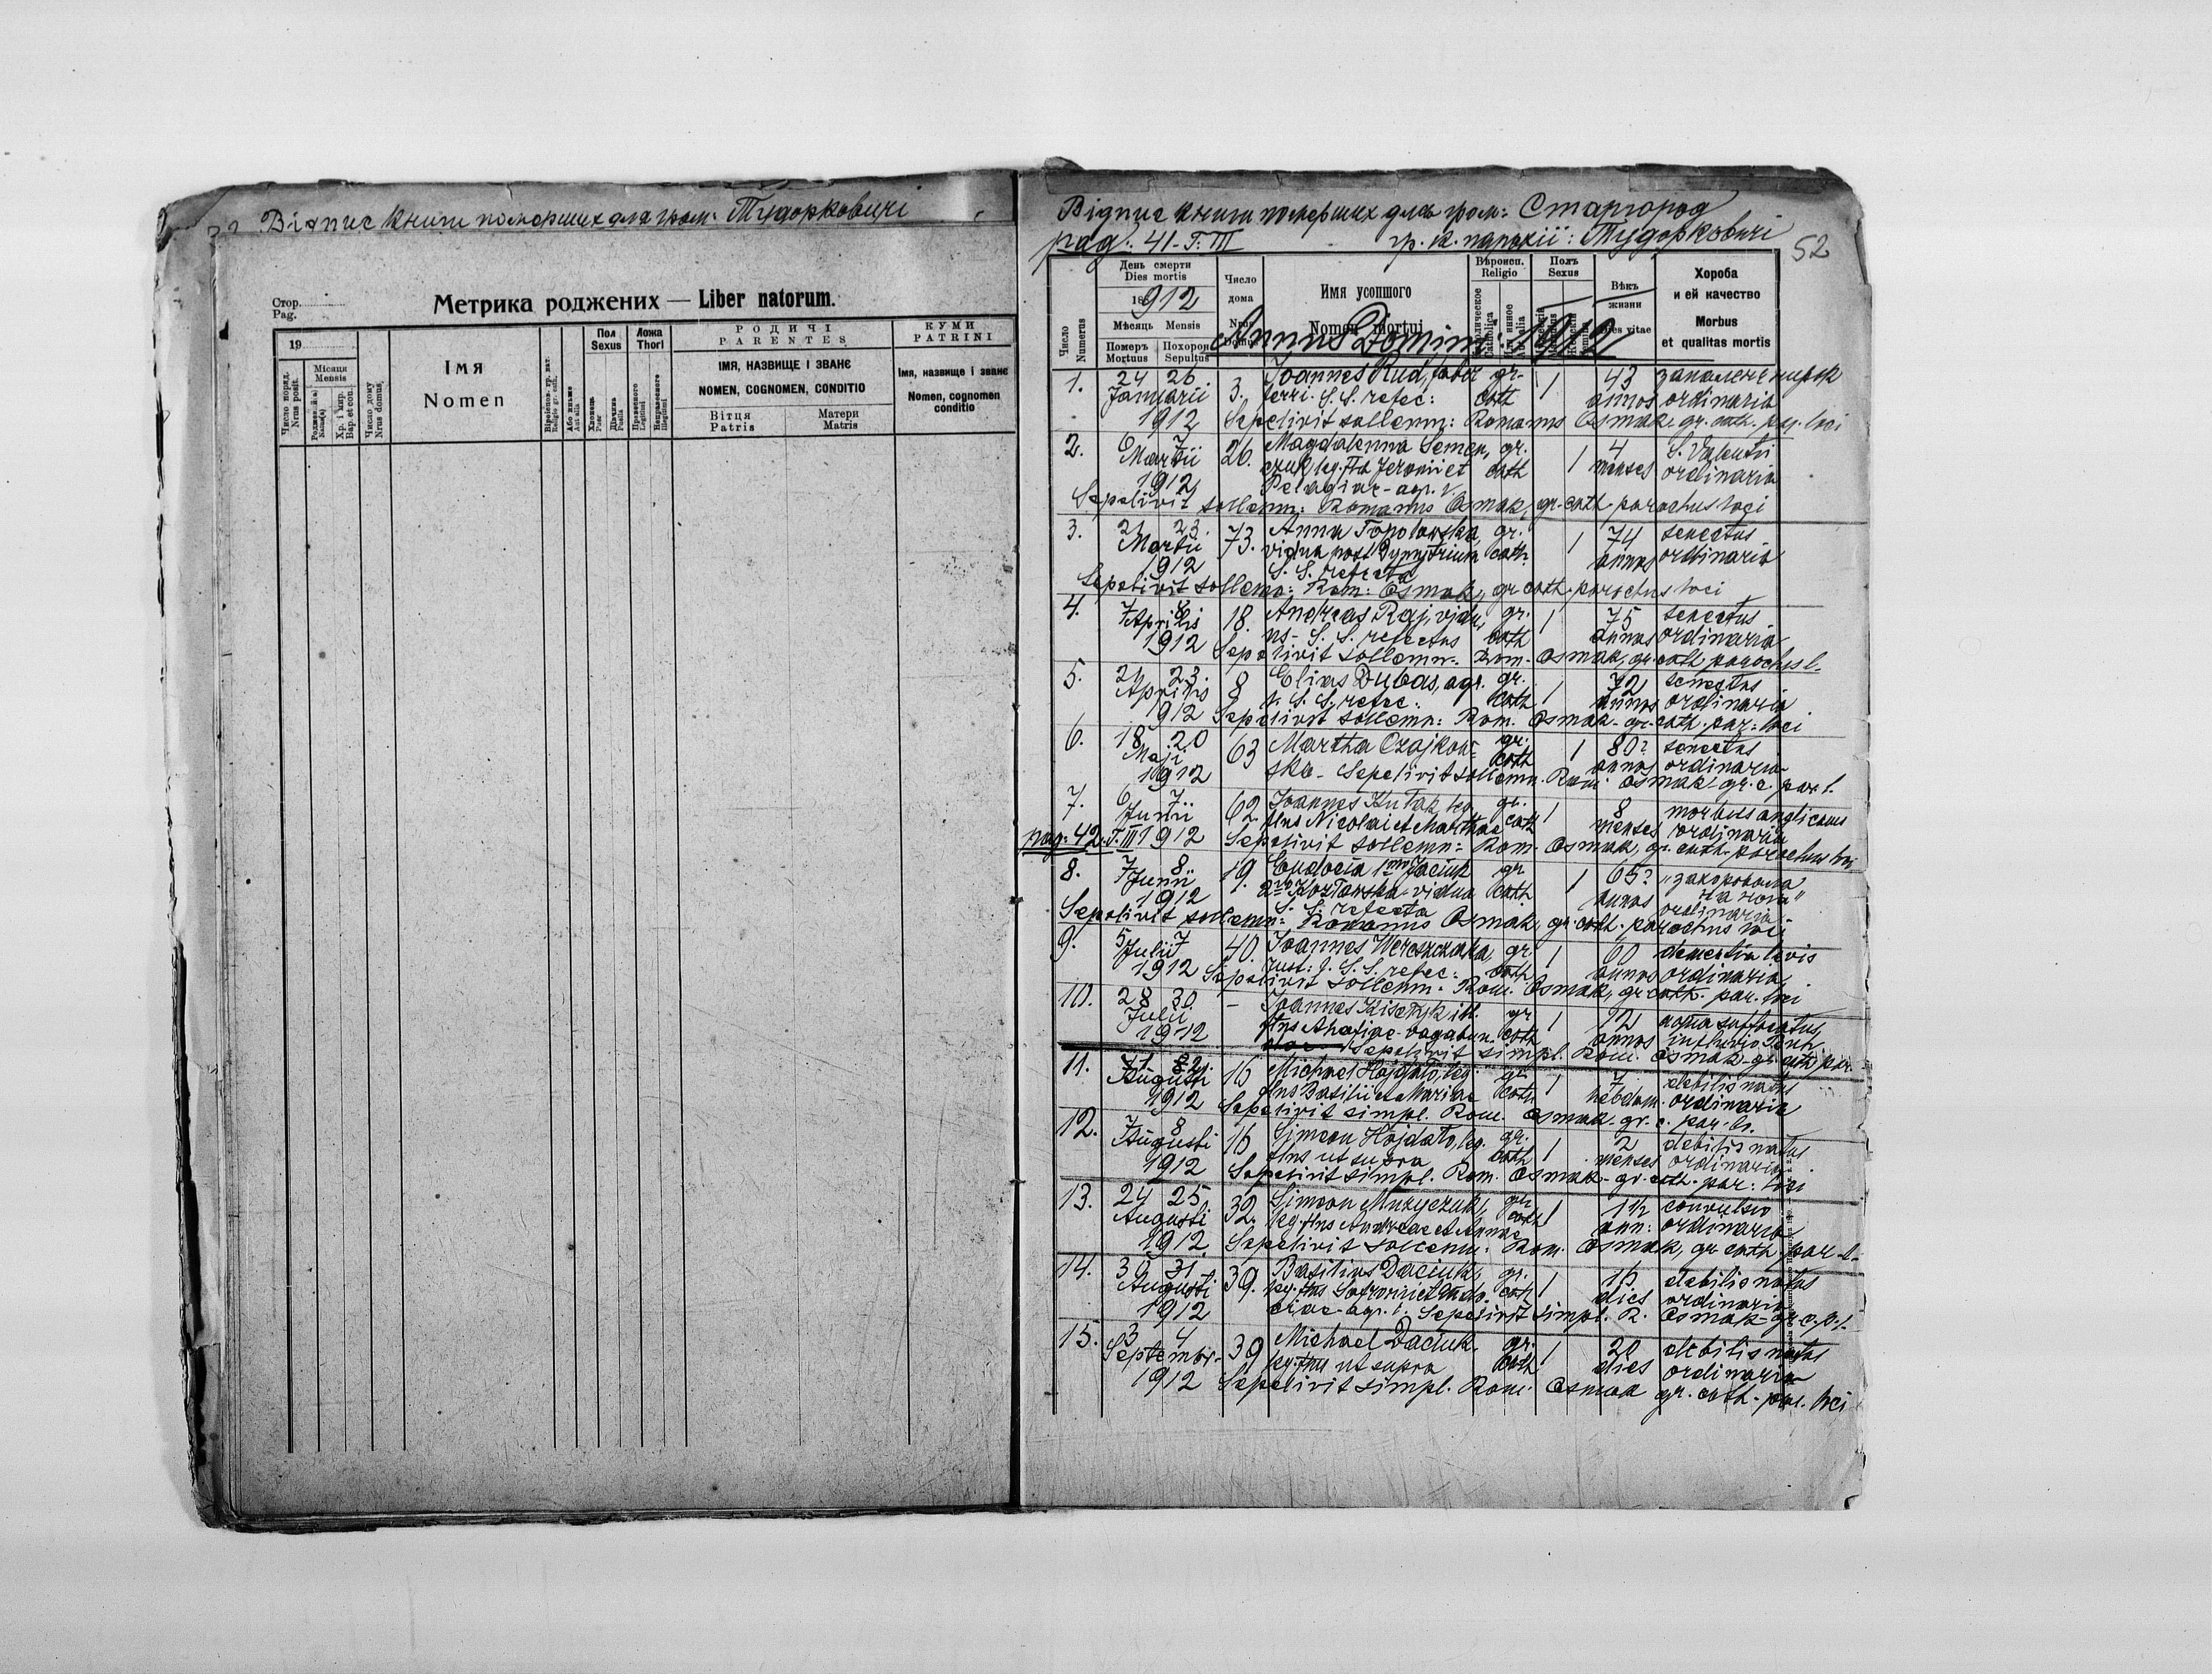 Відпис книги померших для гром: Тудорковичі
Стор.
Pag.
Метрика роджених — Liber natorum.
19
Число поряд.
Nrus posit.
Місяця
Mensis
Хр. і мир.
Bap. et con.
Число дому
Nrus domus
Імя
Nomen
Або иньше
Aut alia
Пол
Sexus
Хлопець
Puer
Дївчина
Puella
Ложа
Thori
Правесного
Legitimi
Неправесного
Illegitimi
РОДИЧІ
PARENTES
ІМЯ, НАЗВИЩЕ І ЗВАНЄ
NOMEN, COGNOMEN, CONDITIO
Вітця
Patris
Матери
Matris
КУМИ
PATRINI
Імя, назвище і званє
Nomen, cognomen
conditio
Відпис книги померших для гром: Старгород
pag. 41-T. III гр. к. парохії: Тудорковичі 52
Число
Numerus
День смерти
Dies mortis
18912
Мѣсяць Mensis
Померъ
Mortuus
Похорон
Sepultus
Число
дома
Имя усопшого
Nomen mortui
Вѣроисп.
Religio
Полъ
Sexus
Вѣкъ
жизни
Dies vitae
Хороба
и ей качество
Morbus
et qualitas mortis
Annus Domini 1912
1. 24 26. 3. Joannes Rud, faber gr. 1 43 запаленє нирок
Januarii ferri. S. S. refec: cath annos ordinaria
1912 Sepelivit sollemn: Romanus Osmak gr. cath. par. loci
2. 6 7 26. Magdalenna Semen, gr. 1 4 S. Valenti
Martii czuk, leg. fta Jeronii et cath menses ordinaria
1912 Pelagiae - agr.
Sepelivit sollemn: Romanus Osmak, gr. cath. parochus loci
3. 21 23. 73. Anna Topolowska, gr. 1 74 senectus
Martii vidua post Dymitrium cath. annos ordinaria
1912 S. S. refecta
Sepelivit sollemn: Rom: Osmak, gr cath. parochus loci
4. 7 8 18. Andreas Raj, vidu, gr. 1 75 senectus
Aprilis us - S. S. refectus cath annos ordinaria
1912 Sepelivit sollemn: Rom. Osmak, gr. cath parochus l.
5. 21 23. 8 Elias Dubas, agr. gr. 1 72 senectus
Aprilis S. S. refec: cath annos ordinaria
1912 Sepelivit sollemn: Rom. Osmak - gr. cath. par: loci
6. 18 20 63 Martha Czajkow- gr. 1 80? senectus
Maji ska - Sepelivit sollemn. Rom. Osmak - gr. c. par. l.
1912 cath annos ordinaria
7. 6 7 62. Joannes Kutak leg. gr. 1 8 morbus anglicus
Junii flns Nicolai et Marthae cath menses ordinaria
pag: 42. T. III 1912 Sepelivit sollemn: Rom. Osmak, gr. cath. parochus loci
8. 7 8 19. Eudocia 1mo Jaciuk gr 1 65? "захоровала
Junii 2do Kozlowska - vidua cath annos на ноги"
1912 S. S. refecta ordinaria
Sepelivit sollemn: Romanus Osmak, gr. cath. parochus loci
9. 5 7 40. Joannes Wereszczaka gr 1 60 dementia levis
Julii S. S. refec: cath annos ordinaria
1912 Sepelivit sollemn: Rom. Osmak, gr cath. par. loci
10. 28 30 - Joannes Kisetyk ill. gr 1 12 aqua suffocatus
Julii flns Ahafiae - vagabun. cath annos in fluvio
1912 Sepelivit simpl. Rom. Osmak - gr. cath par.
11. 16 Michael Hojdalo, leg. gr 1 7 debilis natus
Augusti flns Basilii et Mariae cath hebdom. ordinaria
1912 Sepelivit simpl. Rom. Osmak gr. c. par. l.
12. 7 8 16 Simeon Hojdalo, leg. gr. 1 2 debilis natus
Augusti flns ut supra cath menses ordinaria
1912 Sepelivit simpl. Rom. Osmak - gr. cath. par: loci
13. 24 25 32. Simeon Muzyczuk, gr 1 1½ convulsio
Augusti leg. flns Andreae et Annae cath ann: ordinaria
1912 Sepelivit sollemn: Rom. Osmak, gr cath. par - l -
14. 30 31 39. Basilius Daciuk, gr. 1 16 debilis natus
Augusti leg. flns Sofronii et Eudo- cath dies ordinaria
1912 ciae - agr. l. Sepelivit simpl. R. Osmak - gr. c. p. l.
15. 3 4 39 Michael Daciuk. gr. 1 20 debilis natus
Septembr- leg. flns ut supra cath dies ordinaria
1912 Sepelivit simpl. Rom. Osmak gr. cath. par. loci